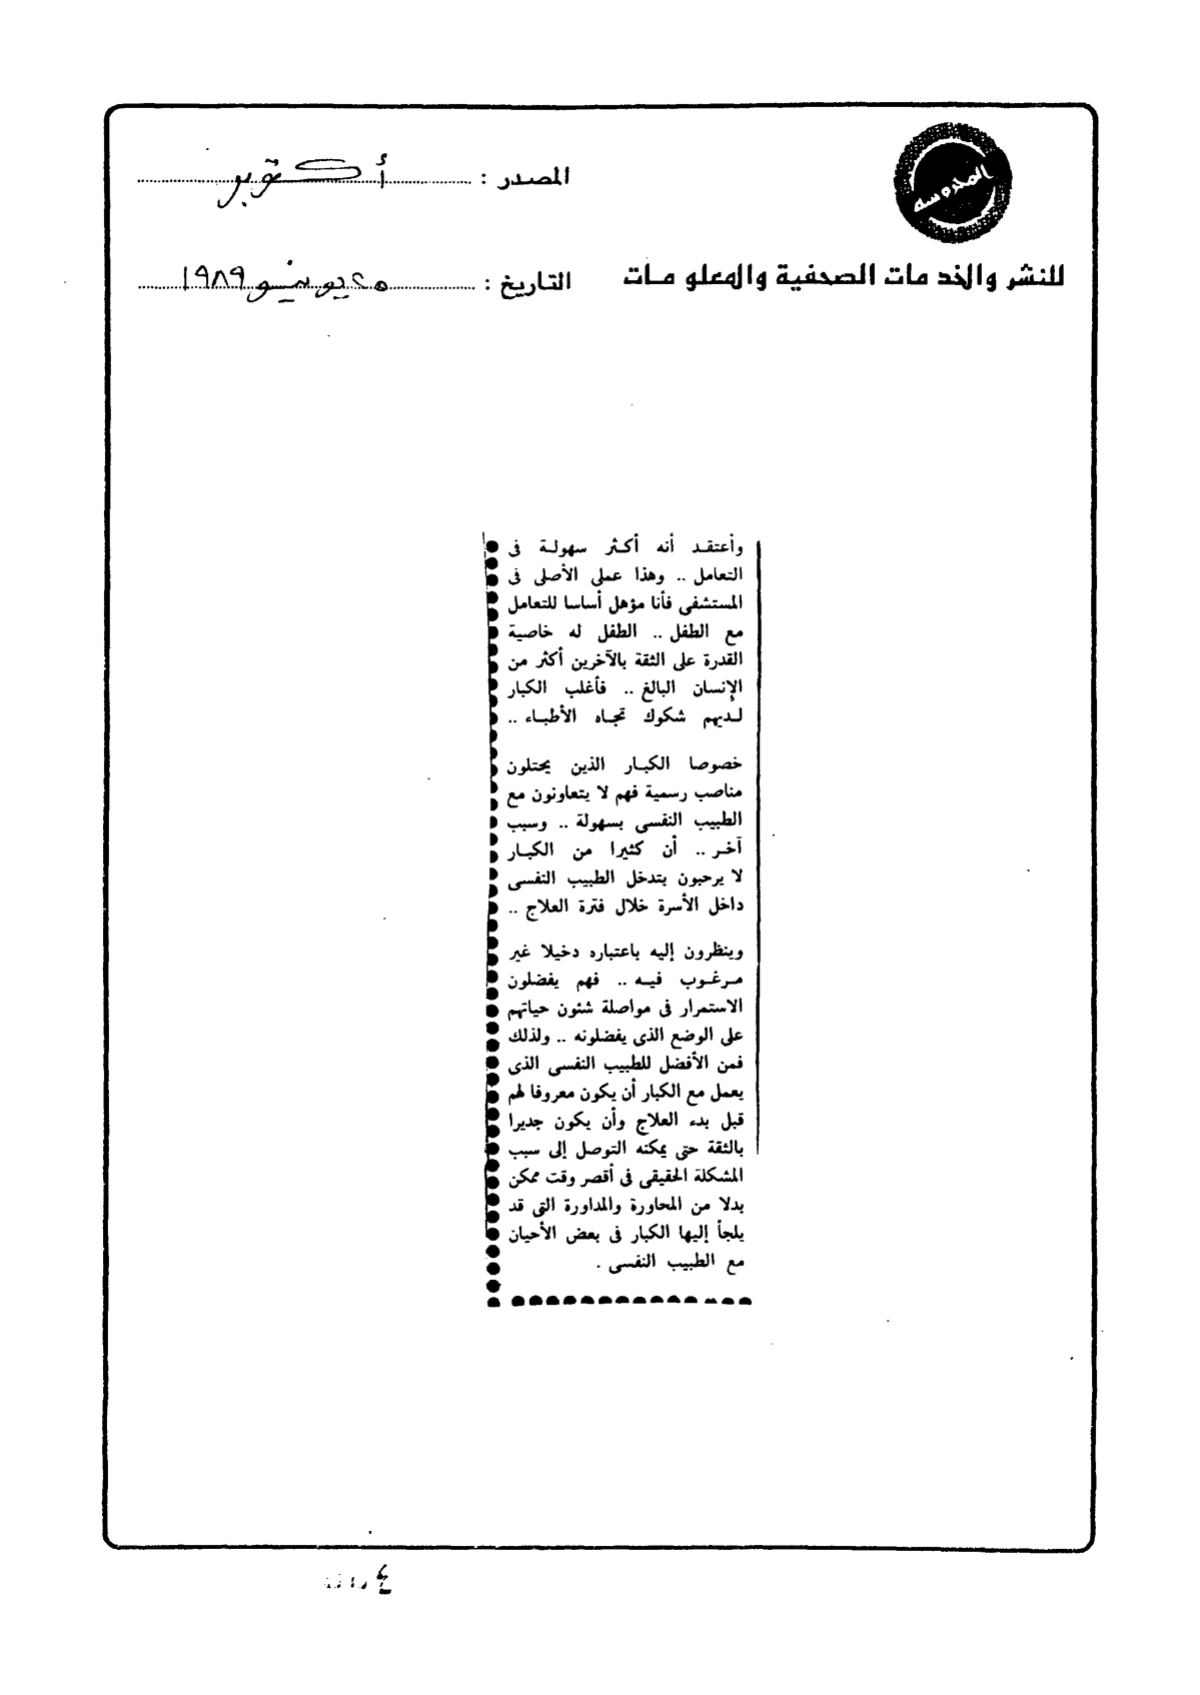 المحروسة
المصدر : أكتوبر
للنشر والخدمات الصحفية والمعلومات
التاريخ : ٢٥ يونيو ١٩٨٩
وأعتقد أنه أكثر سهولة فى
التعامل .. وهذا عملى الأصلى فى
المستشفى فأنا مؤهل أساسا للتعامل
مع الطفل .. الطفل له خاصية
القدرة على الثقة بالآخرين أكثر من
الإنسان البالغ .. فأغلب الكبار
لديهم شكوك تجاه الأطباء ..
خصوصا الكبار الذين يحتلون
مناصب رسمية فهم لا يتعاونون مع
الطبيب النفسى بسهولة .. وسبب
آخر .. أن كثيرا من الكبار
لا يرحبون بتدخل الطبيب النفسى
داخل الأسرة خلال فترة العلاج ..
وينظرون إليه باعتباره دخيلا غير
مرغوب فيه .. فهم يفضلون
الاستمرار فى مواصلة شئون حياتهم
على الوضع الذى يفضلونه .. ولذلك
فمن الأفضل للطبيب النفسى الذى
يعمل مع الكبار أن يكون معروفا لهم
قبل بدء العلاج وأن يكون جديرا
بالثقة حتى يمكنه التوصل إلى سبب
المشكلة الحقيقى فى أقصر وقت ممكن
بدلا من المحاورة والمداورة التى قد
يلجأ إليها الكبار فى بعض الأحيان
مع الطبيب النفسى .